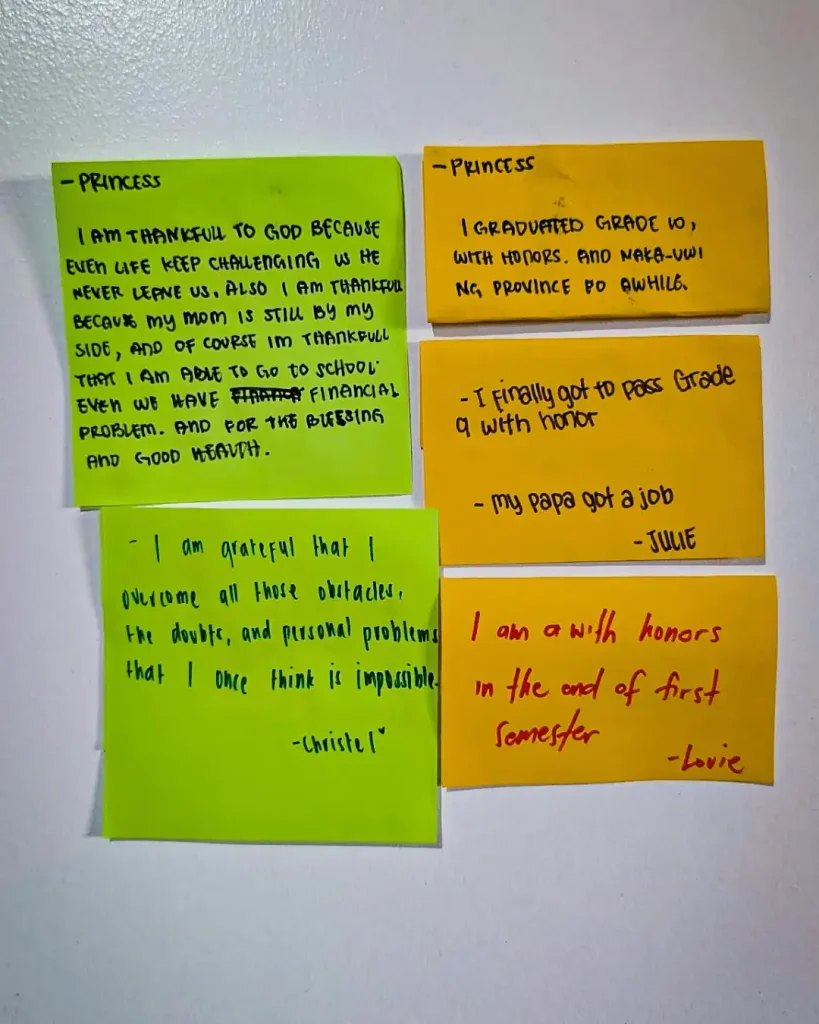 - PRINCESS
I AM THANKFULL TO GOD BECAUSE
EVEN LIFE KEEP CHALLENGING US HE
NEVER LEAVE US. ALSO I AM THANKFULL
BECAUSE MY MOM IS STILL BY MY
SIDE, AND OF COURSE IM THANKFULL
THAT I AM ABLE TO GO TO SCHOOL
EVEN WE HAVE FINANCIAL
PROBLEM. AND FOR THE BLESSING
AND GOOD HEALTH.
- I am grateful that I
overcome all those obstacles,
the doubts, and personal problems
that I once think is impossible.
-Christel
- PRINCESS
I GRADUATED GRADE 10,
WITH HONORS. AND NAKA-UWI
NG PROVINCE FO AWHILE.
- I finally got to pass Grade
9 with honor
- my papa got a job
- JULIE
I am a with honors
in the end of first
semester
-Lovie